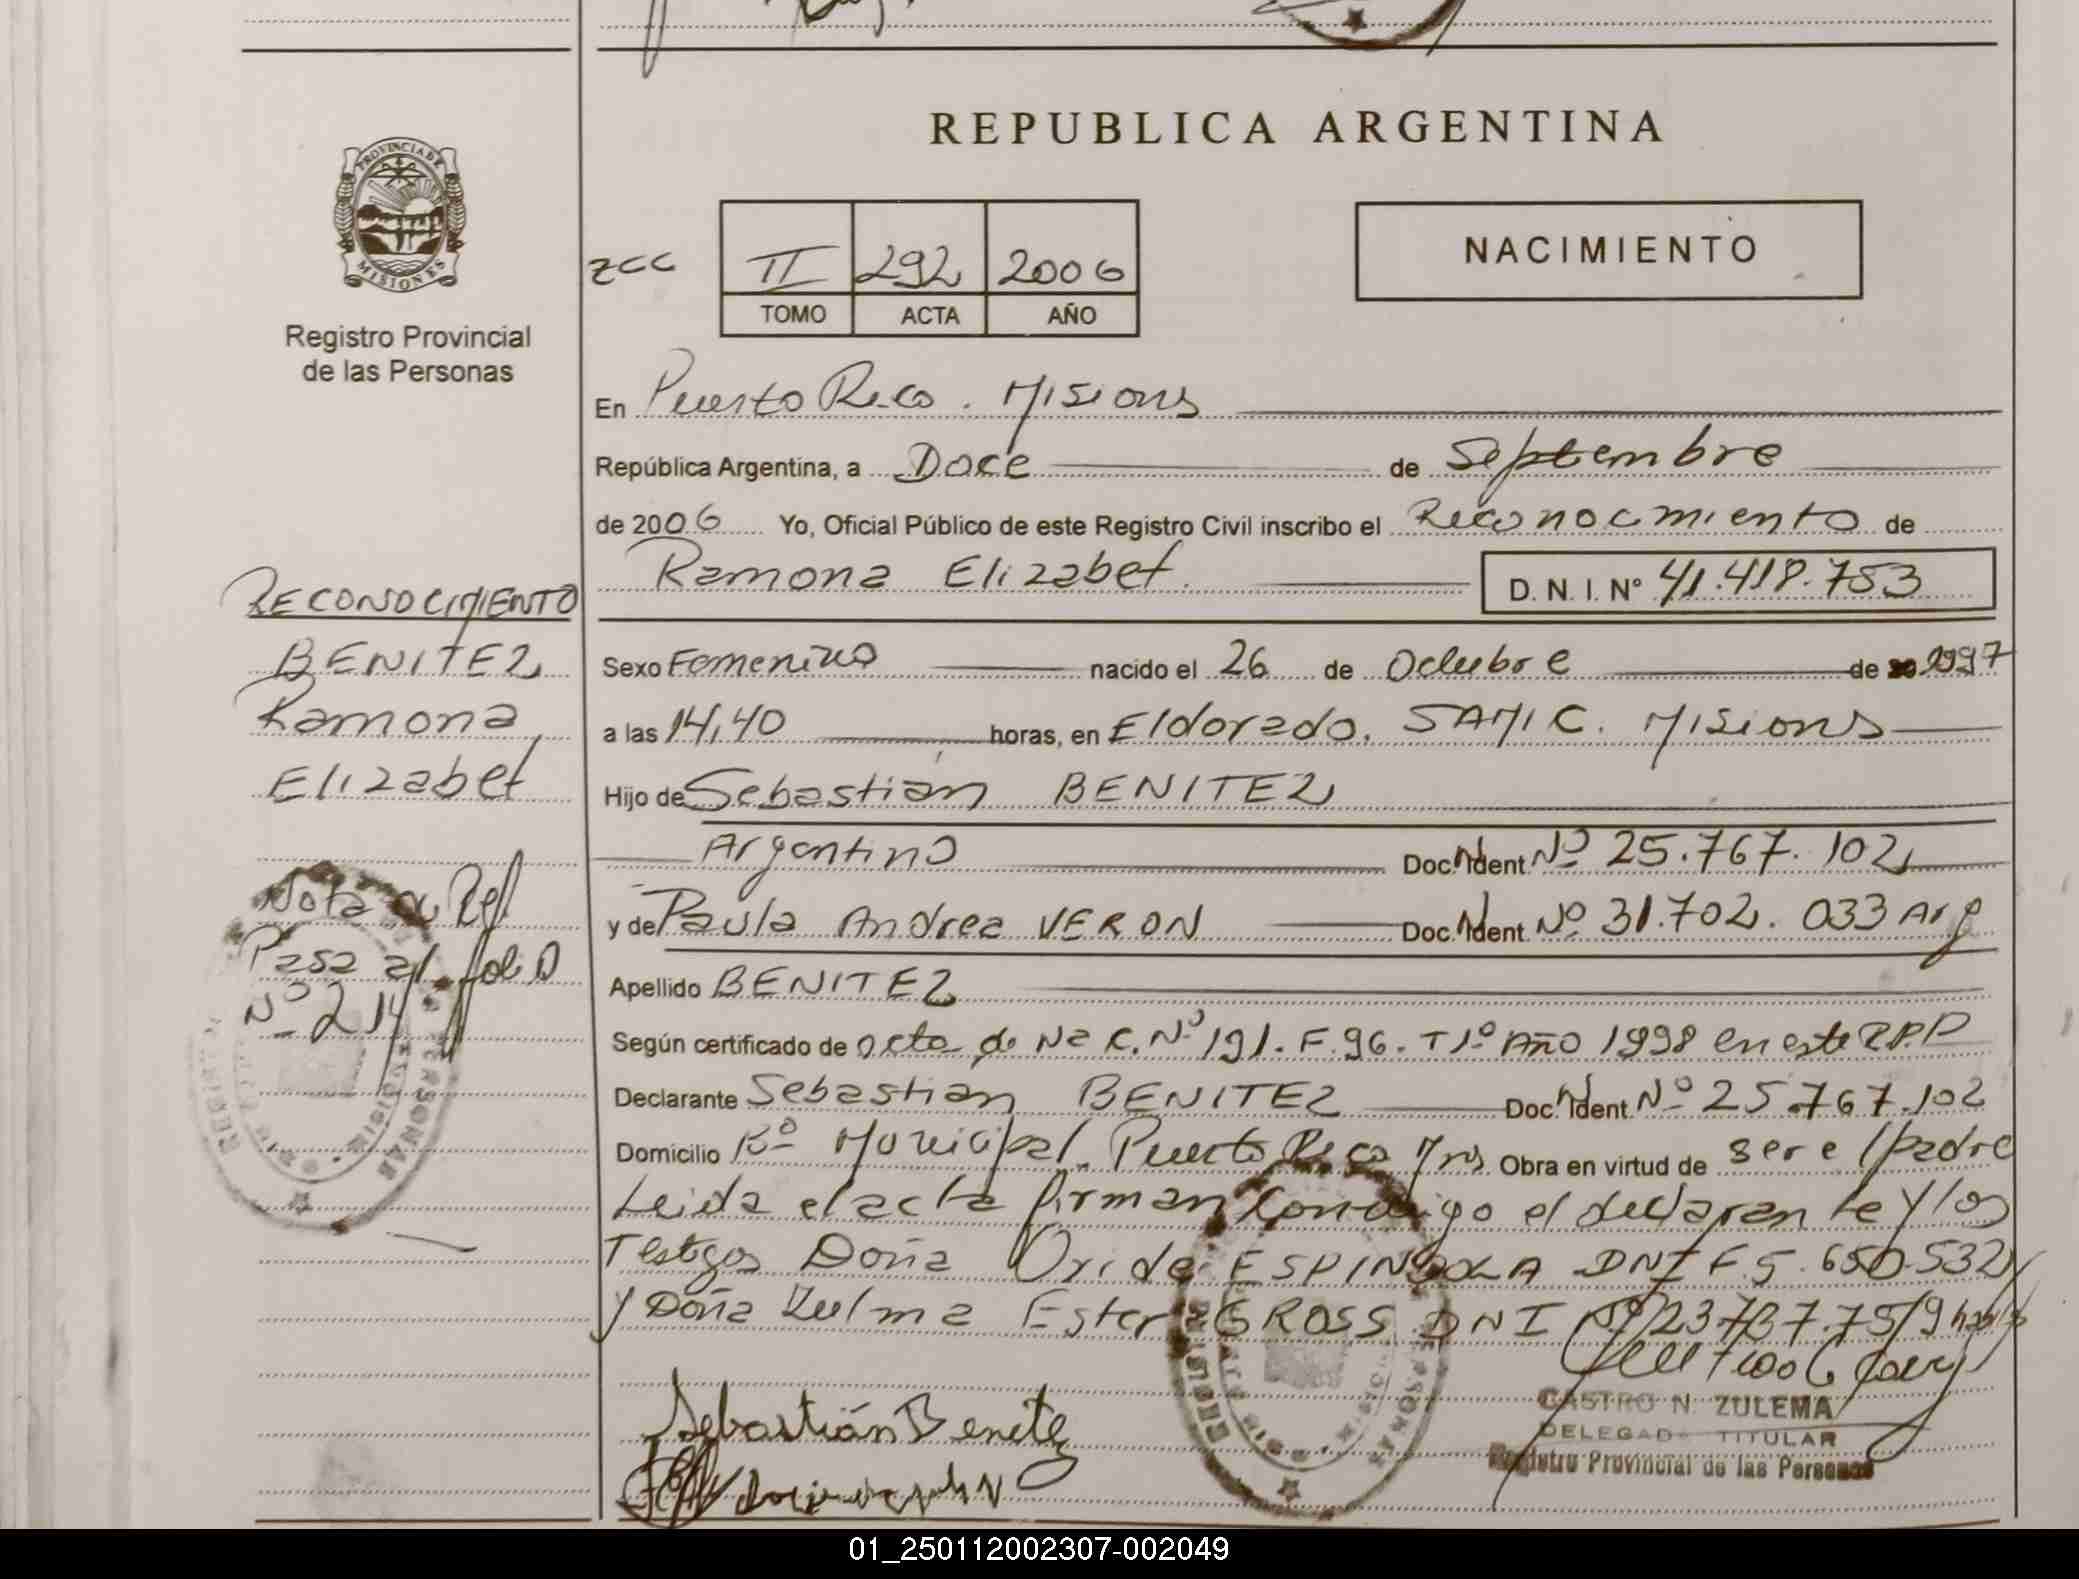 REPUBLICA ARGENTINA
PROVINCIA DE MISIONES
Registro Provincial
de las Personas
zcc
II 292 2006
TOMO ACTA AÑO
NACIMIENTO
En Puerto Rico. Misions
República Argentina, a Doce de Septembre
de 2006 Yo, Oficial Público de este Registro Civil inscribo el Reconocimiento de
Ramona Elizabet. D. N. I. Nº 41.418.753
RECONOCIMIENTO
BENITEZ
Ramona
Elizabet
Sexo Femenino nacido el 26 de Octubre de 1997
a las 14,40 horas, en Eldorado. SAMIC. Misions
Hijo de Sebastián BENITEZ
Argentino Doc. Ident. Nº 25.767.102
y de Paula Andrea VERON Doc. Ident. Nº 31.702.033 Arg
Apellido BENITEZ
Nota de Ref
Pasa al folio
Nº 214
Según certificado de acta de Nac. Nº 191. F. 96. T 1º Año 1998 en este R.P.P
Declarante Sebastian BENITEZ Doc. Ident. Nº 25.767.102
Domicilio Bº Municipal. Puerto Rico Mns Obra en virtud de ser el padre
Leida el acta firman conmigo el declarante y los
Testigos Doña Oride ESPINDOLA DNI F 5.650.532
y Doña Zulma Ester GROSS DNI Nº 23.737.75/9
Sebastián Benitez
CASTRO N. ZULEMA
DELEGADA TITULAR
Registro Provincial de las Personas
01_250112002307-002049